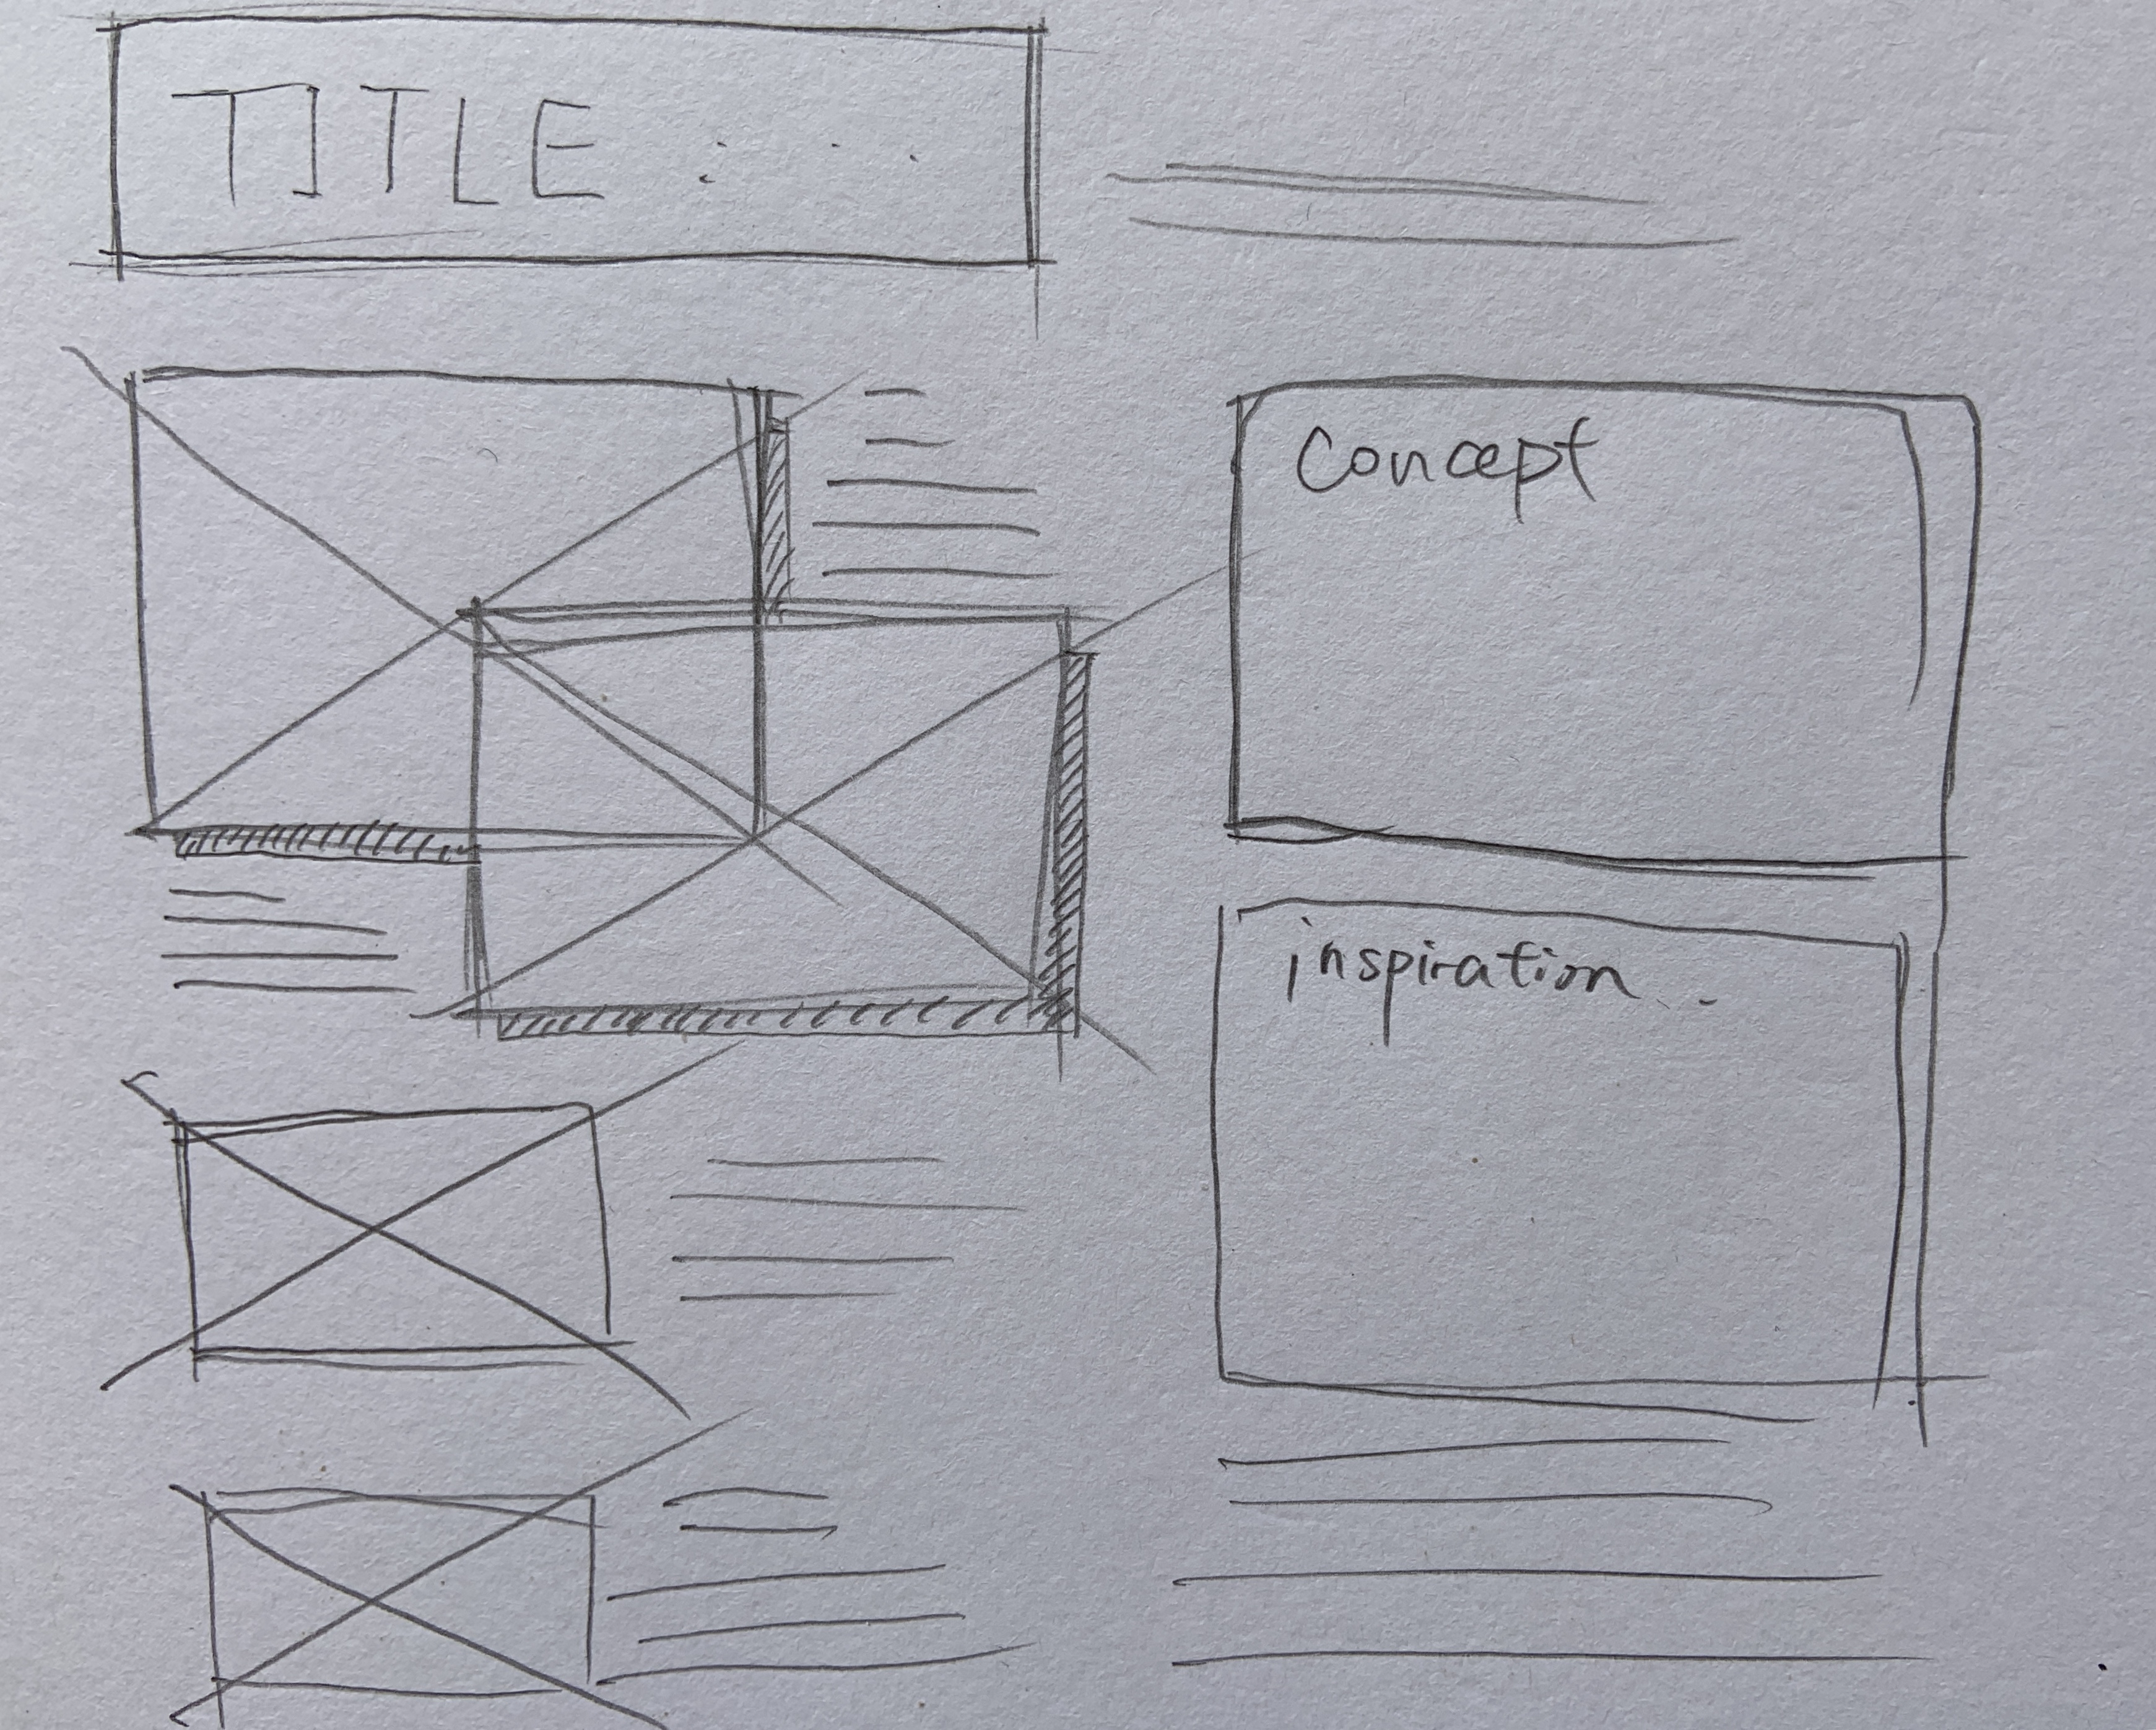 TITLE : . .
Concept
inspiration .